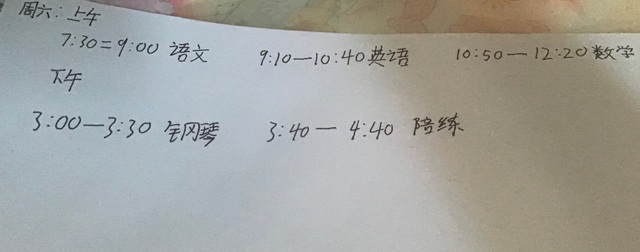 周六:上午
7:30=9:00 语文 9:10—10:40英语 10:50—12:20数学
下午
3:00—3:30 钢琴 3:40—4:40 陪练